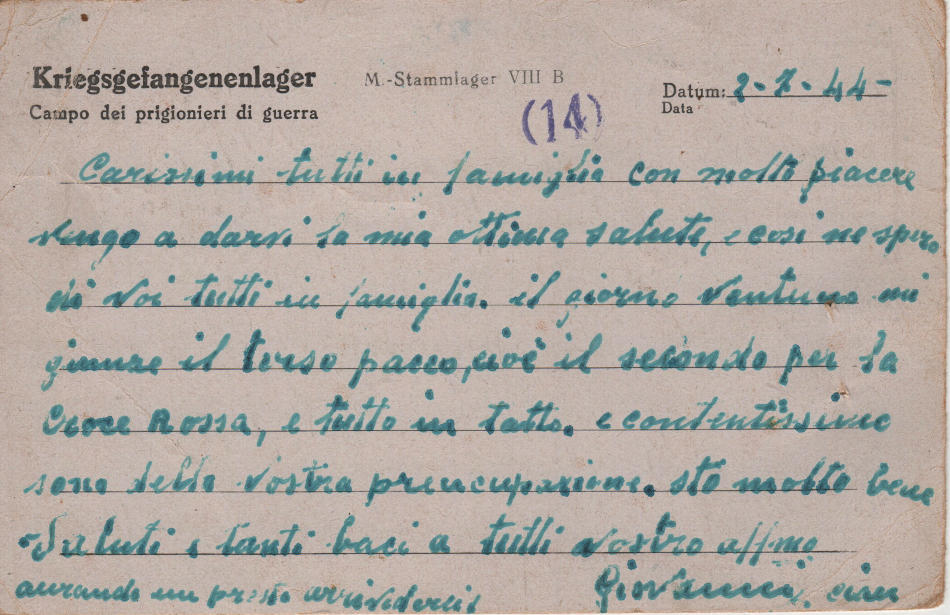 Kriegsgefangenenlager
M.-Stammlager VIII B
Datum: 2-7-44-
Campo dei prigionieri di guerra
Data
(14)
Carissimi tutti in famiglia con molto piacere
vengo a darvi la mia ottima salute, e cosi ne spero
di voi tutti in famiglia. il giorno ventuno mi
giunse il terso pacco, cioè il secondo per la
Croce Rossa, e tutto in tatto. e contentissimo
sono della vostra preucupazione. sto molto bene
Saluti e tanti baci a tutti vostro affmo
aurando un presto arrivederci Giovanni,